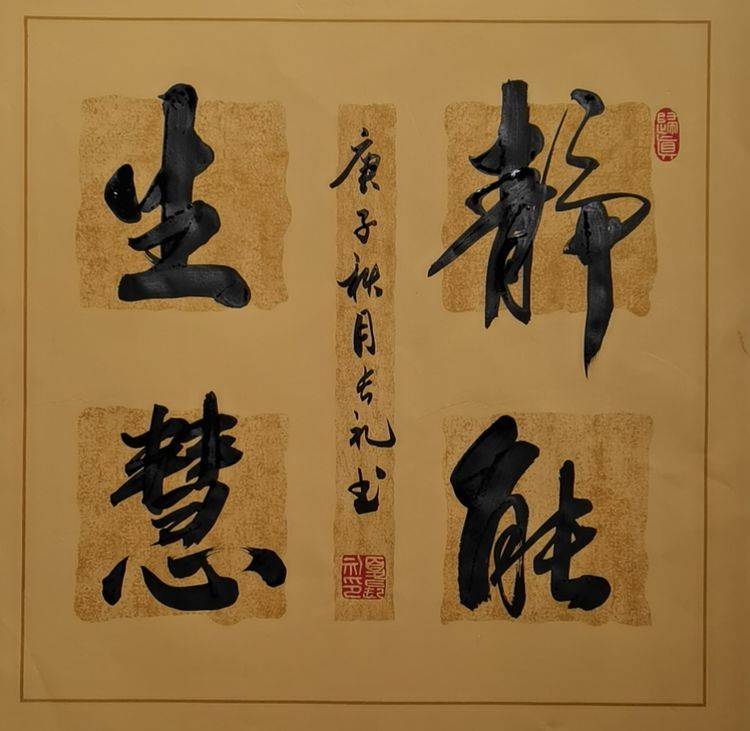 静能
生慧
庚子秋月长礼书
归真